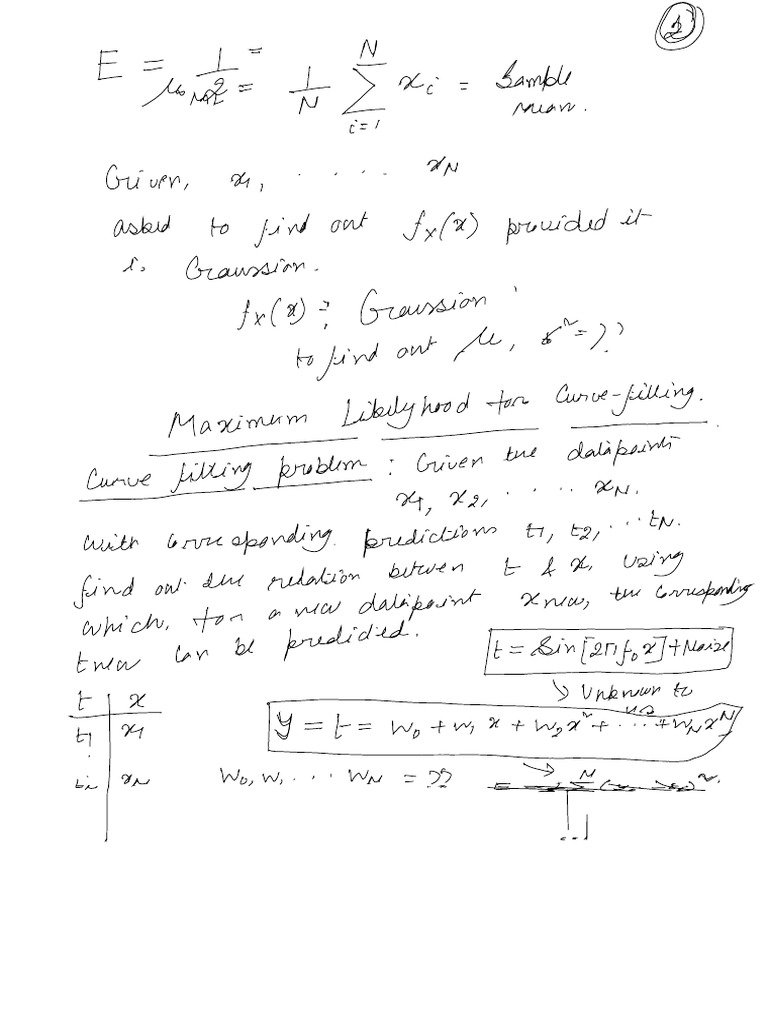 2
E = 1/2 =
μ₀ = 1/N Σ_{i=1}^{N} x_i = Sample mean.
Given, x₁, . . . . . x_N
asked to find out f_X(x) provided it
is Gaussion.
f_X(x) = Gaussion
to find out μ, σ² = ??
Maximum Likelyhood for Curve-filling.
Curve fitting problem : Given the datapoints
x₁, x₂, . . . . . x_N.
with corresponding predictions t₁, t₂, ... t_N.
find out the relation between t & x, using
which, for a new datapoint x_new, the corresponding
t_new can be predicted.
t = Sin[2πf₀x] + Noise
↘ Unknown to us
t | x
y = t = w₀ + w₁x + w₂x² + ... + w_N x^N
t₁ | x₁
t_N | x_N
w₀, w₁ ... w_N = ??